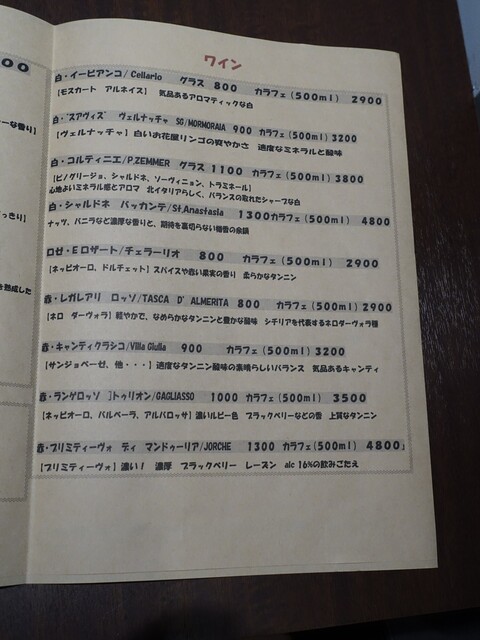 ワイン
白・イービアンコ/Cellario グラス 800 カラフェ(500ml) 2900
【モスカート アルネイス】 気品あるアロマティックな白
白・"スアヴィズ" ヴェルナッチャ SG/MORMORAIA 900 カラフェ(500ml) 3200
【ヴェルナッチャ】白いお花屋リンゴの爽やかさ 適度なミネラルと酸味
白・コルティニエ/P.ZEMMER グラス 1100 カラフェ(500ml) 3800
【ピノグリージョ、シャルドネ、ソーヴィニョン、トラミネール】
心地よいミネラル感とアロマ 北イタリアらしく、バランスの取れたシャープな白
白・シャルドネ バッカンテ/St.Anastasia 1300カラフェ(500ml) 4800
ナッツ、バニラなど濃厚な香りと、期待を裏切らない樽香の余韻
ロゼ・Eロザート/チェラーリオ 800 カラフェ(500ml) 2900
【ネッビオーロ、ドルチェット】スパイスや赤い果実の香り 柔らかなタンニン
赤・レガレアリ ロッソ/TASCA D' ALMERITA 800 カラフェ(500ml) 2900
【ネロ ダーヴォラ】軽やかで、なめらかなタンニンと豊かな酸味 シチリアを代表するネロダーヴォラ種
赤・キャンティクラシコ/Villa Giulia 900 カラフェ(500ml) 3200
【サンジョベーゼ、他・・・】適度なタンニン酸味の素晴らしいバランス 気品あるキャンティ
赤・ランゲロッソ トゥリオン/GAGLIASSO 1000 カラフェ(500ml) 3500
【ネッビオーロ、バルベーラ、アルバロッサ】濃いルビー色 ブラックベリーなどの香 上質なタンニン
赤・プリミティーヴォ ディ マンドゥーリア/JORCHE 1300 カラフェ(500ml) 4800
【プリミティーヴォ】濃い! 濃厚 ブラックベリー レーズン alc 16%の飲みごたえ